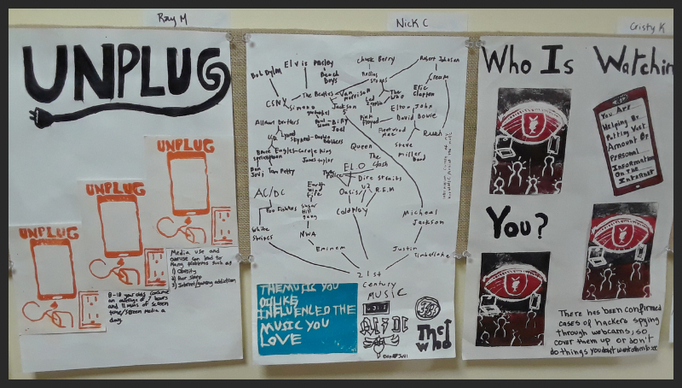 Ray M
Nick C
Cristy K
UNPLUG
UNPLUG
UNPLUG
UNPLUG
Media use and
can lead to
many problems such as
1) Obesity
2)
3) Internet/gaming addiction
8-18 year olds consume
an average of 7 hours
and 11 mins of screen
time/screen media a
day.
Elvis Presley
Chuck Berry
Robert Johnson
Bob Dylan
Beach
Boys
Rolling
Stones
Cream
The Beatles
Van
Morrison
The Who
Eric
Clapton
CSNY
Simon &
Garfunkel
Jackson
Elton John
David Bowie
Allman Brothers
Billy
Joel
Pink
Floyd
Fleetwood
Mac
Rush
Lynyrd
Skynyrd
Doobie
Brothers
Bruce
Springsteen
Eagles
Carole King
James Taylor
Queen
Steve
Miller
Band
Bon
Jovi
Tom Petty
ELO
The
Clash
Dire Straits
AC/DC
Oasis
U2
R.E.M
Foo Fighters
Coldplay
Michael
Jackson
White
Stripes
NWA
Eminem
Justin
Timberlake
21st
Century
MUSIC
THE MUSIC YOU
DISLIKE
INFLUENCED THE
MUSIC YOU
LOVE
The
Who
Who Is Watchin
You Are
Helping By
Putting Vast
Amount Of
Personal
Information
On The
Internet
You?
There has been confirmed
cases of hackers spying
through webcams, so
cover them up or don't
do things you don't want others to see